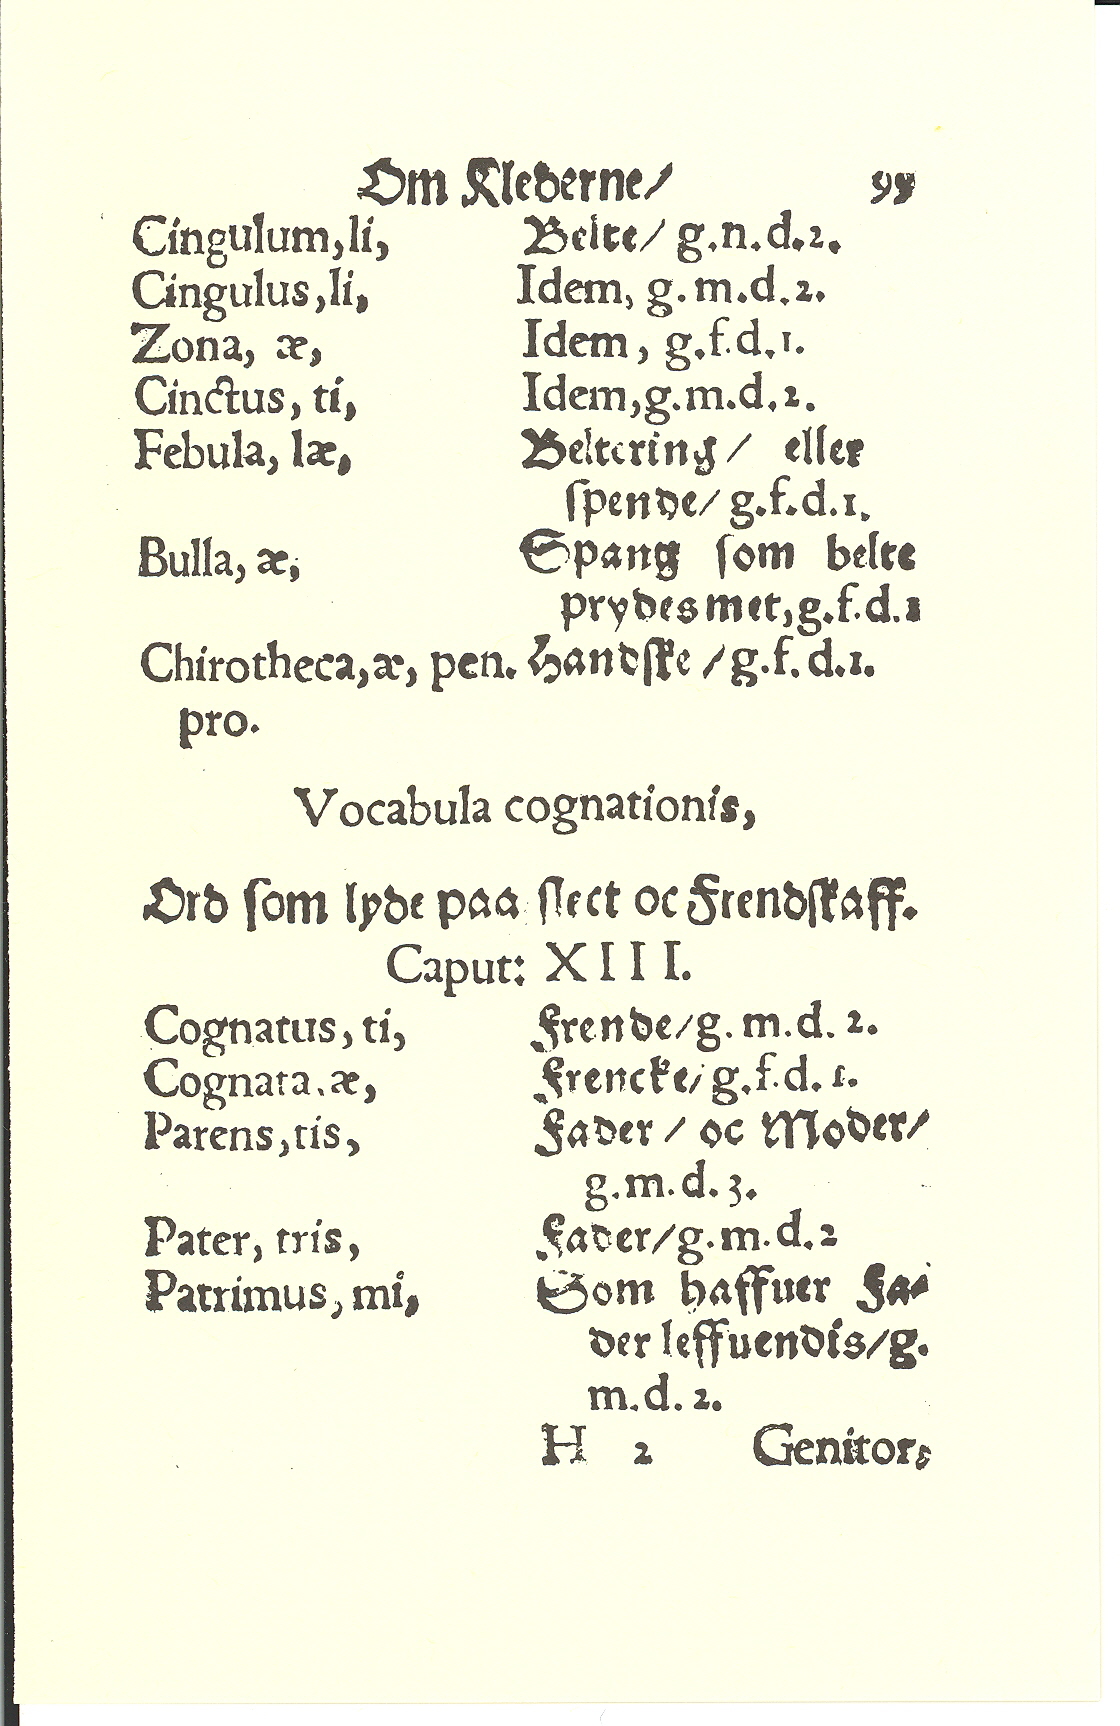 Om Klederne/ 99
Cingulum,li, Belte/ g.n.d.2.
Cingulus,li, Idem, g.m.d.2.
Zona, æ, Idem, g.f.d.1.
Cinctus, ti, Idem,g.m.d.2.
Febula, læ, Beltering/ eller
spende/ g.f.d.1.
Bulla, æ, Spang som belte
prydes met,g.f.d.1
Chirotheca,æ, pen. Handske /g.f.d.1.
pro.
Vocabula cognationis,
Ord som lyde paa slect oc Frendskaff.
Caput: XIII.
Cognatus, ti, Frende/g. m.d. 2.
Cognata.æ, Frencke/g.f.d. 1.
Parens,tis, Fader / oc Moder/
g.m.d. 3.
Pater, tris, Fader/g.m.d.2
Patrimus, mi, Som haffuer Fa-
der leffuendis/g.
m.d. 2.
H 2 Genitor,